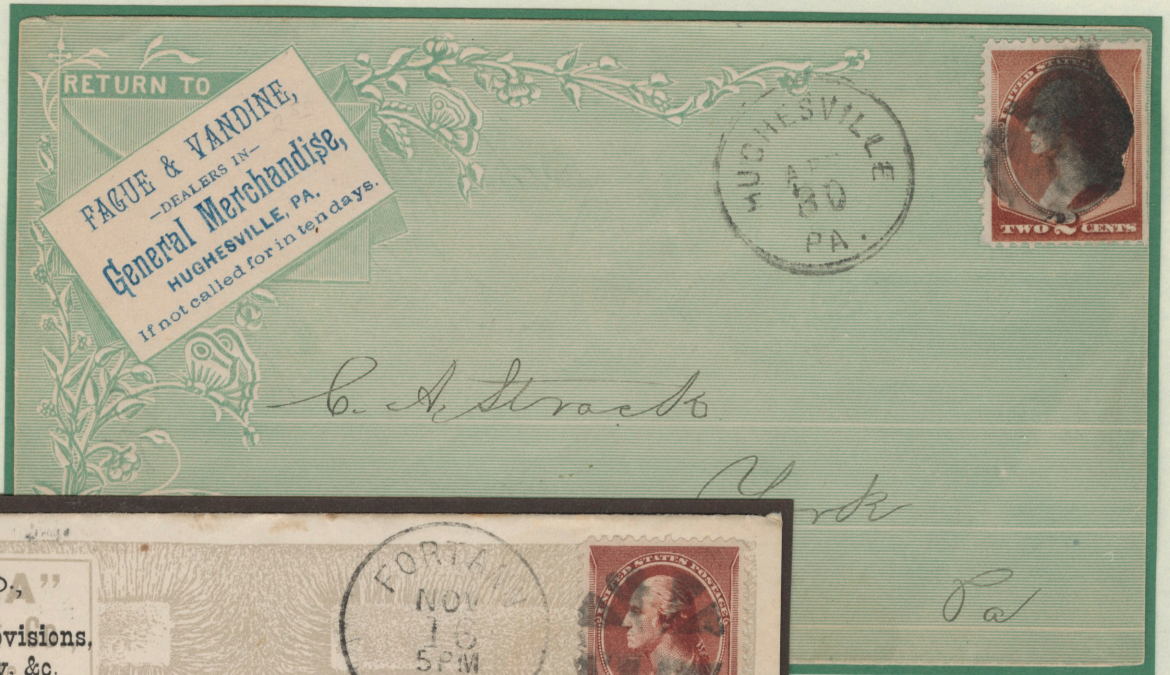 RETURN TO
FAGUE & VANDINE,
—DEALERS IN—
General Merchandise,
HUGHESVILLE, PA.
If not called for in ten days.
HUGHESVILLE
APR
30
PA.
UNITED STATES
TWO 2 CENTS
C. A. Strack
York
Pa
A"
visions,
&c.
NOV
5PM
UNITED STATES POSTAGE